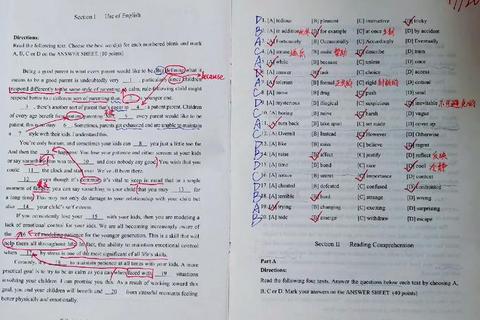 Section I Use of English
Directions:
Read the following text. Choose the best word(s) for each numbered blank and mark
A, B, C or D on the ANSWER SHEET. (10 points)
Being a good parent is what every parent would like to be. But defining what it
means to be a good parent is undoubtedly very 1 , particularly since children
because
respond differently to the same style of parenting. A calm, rule-following child might
respond better to a different sort of parenting than, 2 , a younger one.
3 , there's another sort of parent that's easier to 4 : a patient parent. Children
of every age benefit from patient parenting. Still, 5 every parent would like to be
patient, this is no easy 6 . Sometimes, parents get exhausted and are unable to maintain
a 7 style with their kids. I understand this.
You're only human, and sometimes your kids can 8 you just a little too far.
And then the 9 happens: You lose your patience and either scream at your kids
or say something that was 10 and does nobody any good. You wish that you
could 11 the clock and start over. We've all been there.
12 , even though it's common, it's vital to keep in mind that in a single
moment of fatigue, you can say something to your child that you may 13 for
a long time. This may not only do damage to your relationship with your child but
also 14 your child's self-esteem.
If you consistently lose your 15 with your kids, then you are modeling a
lack of emotional control for your kids. We are all becoming increasingly aware of
the 16 of modeling patience for the younger generation. This is a skill that will
help them all throughout life. In fact, the ability to maintain emotional control
when 17 by stress is one of the most significant of all life's skills.
Certainly, it's 18 to maintain patience at all times with your kids. A more
practical goal is to try to be as calm as you can when faced with 19 situations
involving your children. I can promise you this: As a result of working toward this
goal, you and your children will benefit and 20 from stressful moments feeling
better physically and emotionally.
1. [A] tedious [B] pleasant [C] instructive [D] tricky
2. [A] in addition [B] for example [C] at once [D] by accident
3. [A] Fortunately [B] Occasionally [C] Accordingly [D] Eventually
4. [A] amuse [B] assist [C] describe [D] train
5. [A] while [B] because [C] unless [D] once
6. [A] answer [B] task [C] choice [D] access
7. [A] tolerant [B] formal [C] rigid [D] critical
8. [A] move [B] drag [C] push [D] send
9. [A] mysterious [B] illogical [C] suspicious [D] inevitable
10. [A] boring [B] naive [C] harsh [D] vague
11. [A] turn back [B] take apart [C] set aside [D] cover up
12. [A] Overall [B] Instead [C] However [D] Otherwise
13. [A] like [B] miss [C] believe [D] regret
14. [A] raise [B] affect [C] justify [D] reflect
15. [A] time [B] bond [C] race [D] cool
16. [A] nature [B] secret [C] importance [D] context
17. [A] cheated [B] defeated [C] confused [D] confronted
18. [A] terrible [B] hard [C] strange [D] wrong
19. [A] trying [B] changing [C] exciting [D] surprising
20. [A] hide [B] emerge [C] withdraw [D] escape
Section II Reading Comprehension
Part A
Directions:
Read the following four texts. Answer the questions below each text by choosing A,
B, C or D. Mark your answers on the ANSWER SHEET. (40 points)